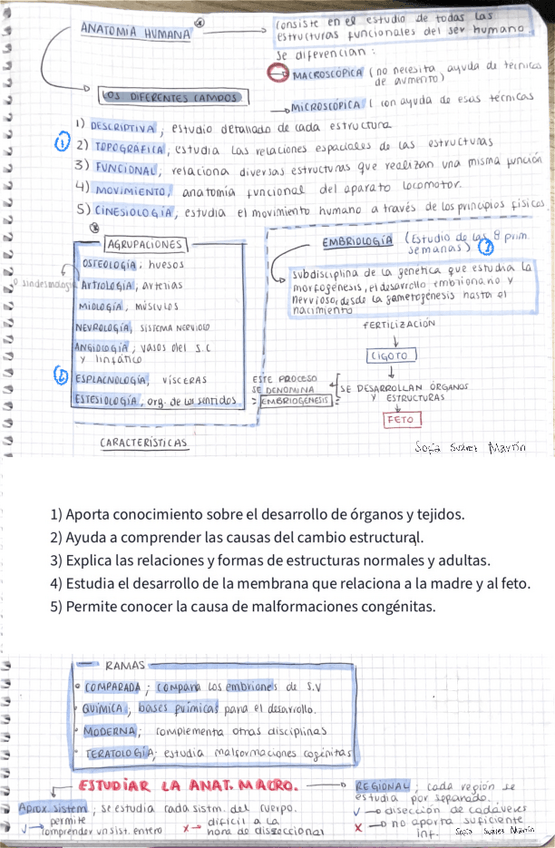 ANATOMÍA HUMANA
consiste en el estudio de todas las
estructuras funcionales del ser humano
se diferencian:
MACROSCÓPICA (no necesita ayuda de técnicas
de aumento)
LOS DIFERENTES CAMPOS
MICROSCÓPICA (con ayuda de esas técnicas
1) DESCRIPTIVA, estudio detallado de cada estructura
1 2) TOPOGRÁFICA, estudia las relaciones espaciales de las estructuras
3) FUNCIONAL, relaciona diversas estructuras que realizan una misma función
4) MOVIMIENTO, anatomía funcional del aparato locomotor.
5) CINESIOLOGÍA, estudia el movimiento humano a través de los principios físicos.
AGRUPACIONES
OSTEOLOGÍA, huesos
o sindesmología
Artrología, arterias
MIOLOGÍA, músculos
NEUROLOGÍA, sistema nervioso
ANGIOLOGÍA, vasos del S.C
y linfático
ESPLACNOLOGÍA, vísceras
ESTESIOLOGÍA, org. de los sentidos
EMBRIOLOGÍA (Estudio de las 8 prim.
semanas)
subdisciplina de la genética que estudia la
morfogénesis, el desarrollo embrionario y
nervioso, desde la gametogénesis hasta el
nacimiento
FERTILIZACIÓN
CIGOTO
ESTE PROCESO
SE DENOMINA
EMBRIOGÉNESIS
SE DESARROLLAN ÓRGANOS
Y ESTRUCTURAS
FETO
CARACTERÍSTICAS
Sofía Suárez Martín
1) Aporta conocimiento sobre el desarrollo de órganos y tejidos.
2) Ayuda a comprender las causas del cambio estructural.
3) Explica las relaciones y formas de estructuras normales y adultas.
4) Estudia el desarrollo de la membrana que relaciona a la madre y al feto.
5) Permite conocer la causa de malformaciones congénitas.
RAMAS
COMPARADA; compara los embriones de S.V
QUÍMICA, bases químicas para el desarrollo.
MODERNA; complementa otras disciplinas
TERATOLOGÍA; estudia malformaciones cogénitas
ESTUDIAR LA ANAT. MACRO.
Aprox. sistem, se estudia cada sistm. del cuerpo.
permite
comprender un sist. entero
x → difícil a la
hora de disseccional
REGIONAL; cada región se
estudia por separado.
√ → disección de cadáveres
x → no aporta suficiente
inf.
Sofía Suárez Martín